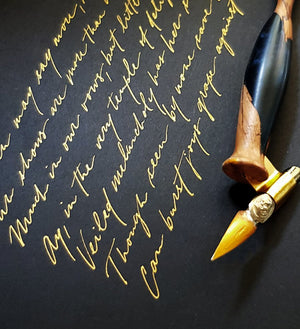 may say more,
shows are more than
Much in our vows, but little
Ay, in the very temple of
Veiled melancholy has her
Though seen by none save
Can burst joys grape against